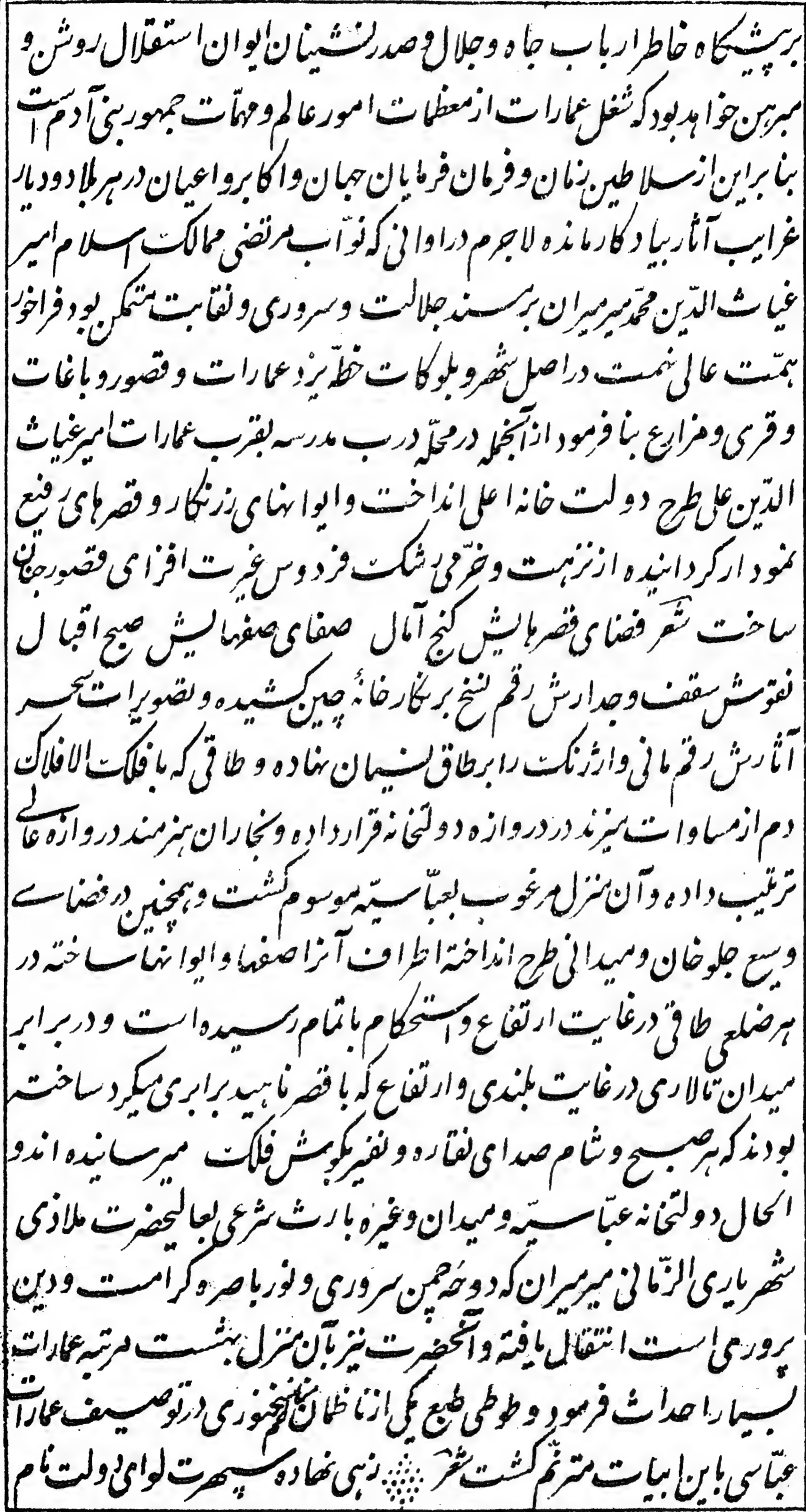 بر پیشگاه خاطر ارباب جاه و جلال و صدر نشینان ایوان استقلال روشن و
مبرهن خواهد بود که شغل عمارات از معظمات امور عالم و مهمّات جمهور بنی آدم است
بنا براین از سلاطین زمان و فرمان فرمایان جهان و اکابر و اعیان در هر بلاد و دیار
غرایب آثار بیادکار مانده لاجرم در اوانی که نوّاب مرتضی ممالک اسلام امیر
غیاث الدّین محمّد میرمیران بر مسند جلالت و سروری و نقابت متمکن بود فراخور
همّت عالی نهمت در اصل شهر و بلوکات خطّه یزد عمارات و قصور و باغات
و قری و مزارع بنا فرمود از آنجمله در محلّه درب مدرسه بقرب عمارات امیر غیاث
الدّین علی طرح دولت خانه اعلی انداخت و ایوانهای زرنکار و قصرهای رفیع
نمودار کردانیده از نزهت و خرّمی رشک فردوس غیرت افزای قصور جنان
ساخت شعر فضای قصرهایش کنج آمال صفای صفهایش صبح اقبال
نقوش سقف و جدارش رقم نسخ بر نکارخانهٔ چین کشیده و تصویرات سحر
آثارش رقم مانی و ارژنک را بر طاق نسیان نهاده و طاقی که با فلک الافلاک
دم از مساوات میزند در دروازه دولتخانه قرار داده و نجاران هنرمند دروازه عالی
ترتیب داده و آن منزل مرغوب بعبّاسیّه موسوم کشت و همچنین در فضاے
وسیع جلوخان و میدانی طرح انداخته اطراف آنرا صفها و ایوانها ساخته در
هر ضلعی طاقی در غایت ارتفاع و استحکام باتمام رسیده است و در برابر
میدان تالاری در غایت بلندی و ارتفاع که با قصر ناهید برابری میکرد ساخته
بودند که هر صبح و شام صدای نقاره و نفیر بکوش فلک میرسانیده اند و
الحال دولتخانه عبّاسیّه و میدان و غیره بارث شرعی بعالیحضرت ملاذی
شهریاری الزّمانی میرمیران که دوحهٔ چمن سروری و نور باصره کرامت و دین
پروری است انتقال یافته و آنحضرت نیز بآن منزل بهشت مرتبه عمارات
بسیار احداث فرمود و طوطی طبع یکی از ناظمان سخنوری در توصیف عمارات
عبّاسی باین ابیات مترنّم کشت شعر زهی نهاده سپهرت لوای دولت نام